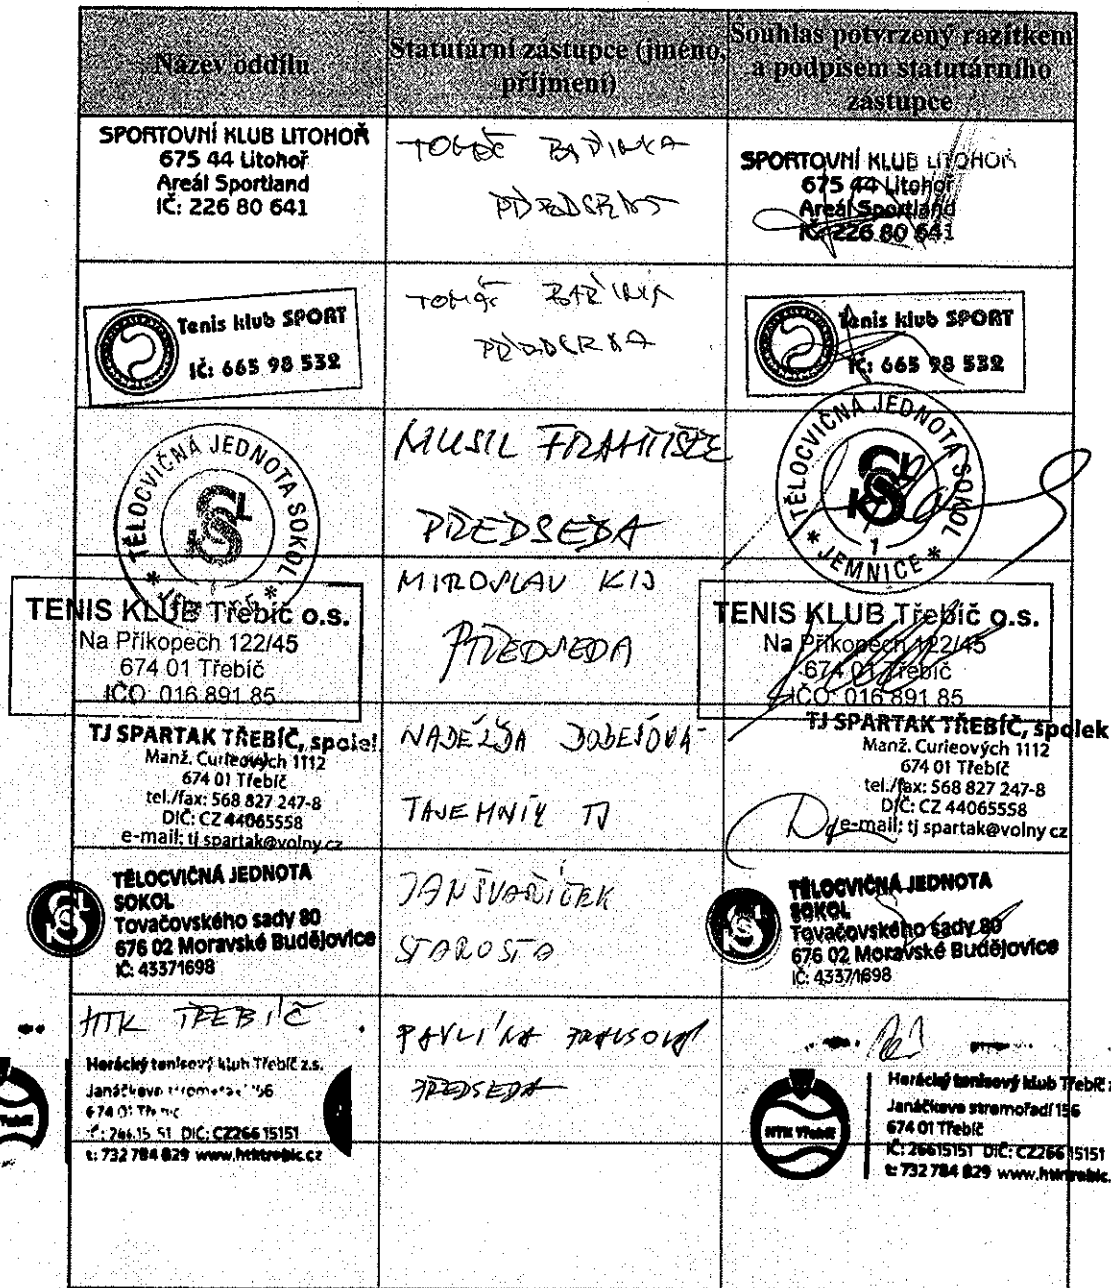 Název oddílu
Statutární zástupce (jméno, příjmení)
Souhlas potvrzený razítkem a podpisem statutárního zástupce
SPORTOVNÍ KLUB LITOHOŘ
675 44 Litohoř
Areál Sportland
IČ: 226 80 641
SPORTOVNÍ KLUB LITOHOŘ
675 44 Litohoř
Areál Sportland
IČ: 226 80 641
Tenis klub SPORT
IČ: 665 98 532
Tenis klub SPORT
IČ: 665 98 532
TĚLOCVIČNÁ JEDNOTA SOKOL
MUSIL
PŘEDSEDA
TĚLOCVIČNÁ JEDNOTA SOKOL
1
JEMNICE
TENIS KLUB Třebíč o.s.
Na Příkopech 122/45
674 01 Třebíč
IČO 016 891 85
MIROSLAV
PŘEDSEDA
TENIS KLUB Třebíč o.s.
Na Příkopech 122/45
674 01 Třebíč
IČO 016 891 85
TJ SPARTAK TŘEBÍČ, spolek
Manž. Curieových 1112
674 01 Třebíč
tel./fax: 568 827 247-8
DIČ: CZ 44065558
e-mail: tj spartak@volny cz
NADĚŽDA DOBEŠOVÁ
TAJEMNÍK TJ
TJ SPARTAK TŘEBÍČ, spolek
Manž. Curieových 1112
674 01 Třebíč
tel./fax: 568 827 247-8
DIČ: CZ 44065558
e-mail: tj spartak@volny cz
TĚLOCVIČNÁ JEDNOTA
SOKOL
Tovačovského sady 80
676 02 Moravské Budějovice
IČ: 43371698
JAN ŠVAŘÍČEK
STAROSTA
TĚLOCVIČNÁ JEDNOTA
SOKOL
Tovačovského sady 80
676 02 Moravské Budějovice
IČ: 43371698
HTK TŘEBÍČ
Horácký tenisový klub Třebíč z.s.
Janáčkovo stromořadí 156
674 01 Třebíč
DIČ: CZ26615151
t: 732 784 829 www.htktrebic.cz
PAVLÍNA
PŘEDSEDA
HTK Třebíč
Horácký tenisový klub Třebíč
Janáčkovo stromořadí 156
674 01 Třebíč
IČ: 26615151 DIČ: CZ26615151
t: 732 784 829